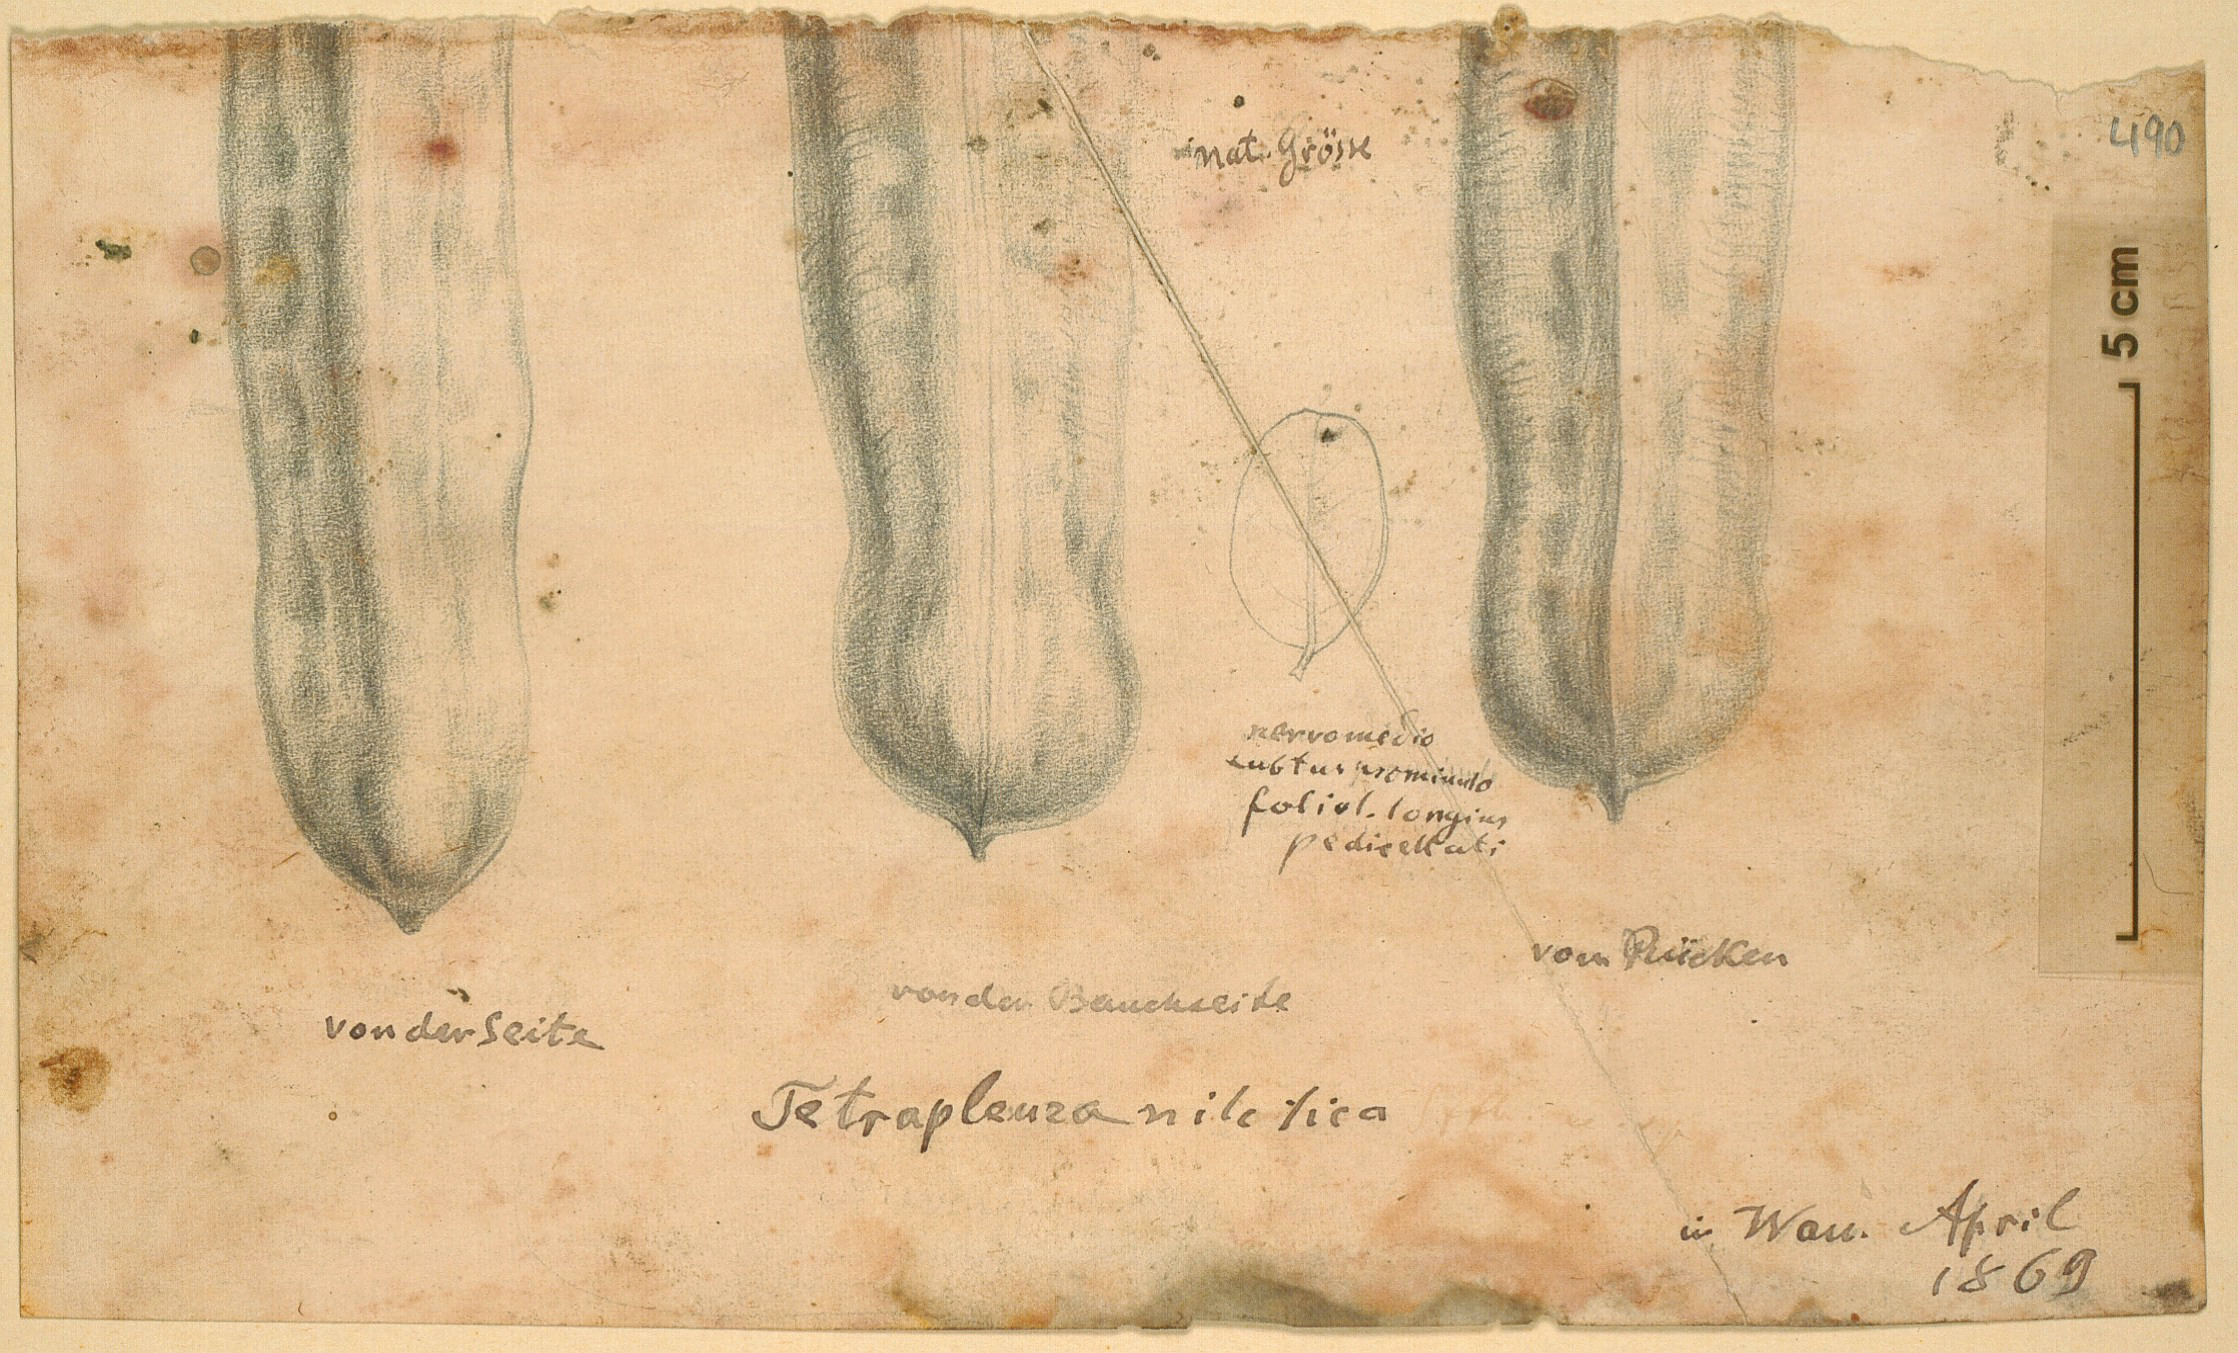 490
in nat. Grösse
5 cm
nervo medio
subtus prominulo
foliol. longius
pedicellati
vom Rücken
von der Bauchseite
von der Seite
Tetrapleura nilotica
in Wau. April
1869